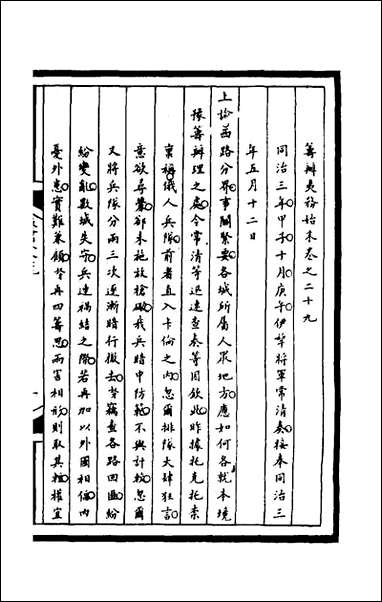 籌辦夷務始末卷之二十九
同治三年甲子十月庚午伊犂將軍常清奏接奉同治三
年五月十二日
上諭茲路分界事關緊要各城所屬人眾地方應如何各就本境
豫籌辦理之處令常清等迅速查奏等因欽此昨據托克托奈
稟稱俄人兵隊前者直入卡倫之內忽爾排隊大肆狂言
意欲尋釁卻未施放槍礮我兵暗中防範不與計較忽爾
又將兵隊分兩三次逐漸暗行撤去竊查各路回匪紛
紛變亂數城失守兵連禍結之際若再加以外國相偪內
憂外患實難兼顧再四籌思兩害相形則取其輕權宜